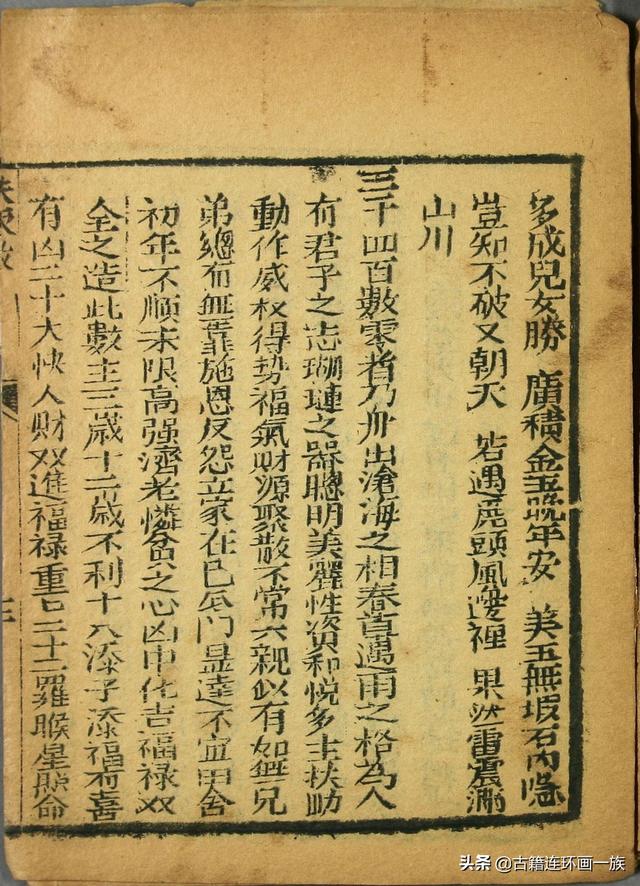 多成兒女勝 廣積金玉晚年安 美玉無瑕石內隐
豈知不破又朝天 若遇鹿頭風邊裡 果然雷震滿
山川
三千四百數零者乃舟出滄海之相春苗遇雨之格為人
有君子之志瑚璉之器聰明美麗性資和悅多主扶助
動作威权得势福氣財源聚散不常六親似有如無兄
弟總有無靠施恩反怨立家在已公門显達不宜田舍
初年不順末限高强濟老憐貧之心凶中化吉福禄双
全之造此數主三歲十二歲不利十八添子添福有喜
有凶二十大快人財双進福禄重重二十二羅睺星照命
头条 @古籍连环画一族